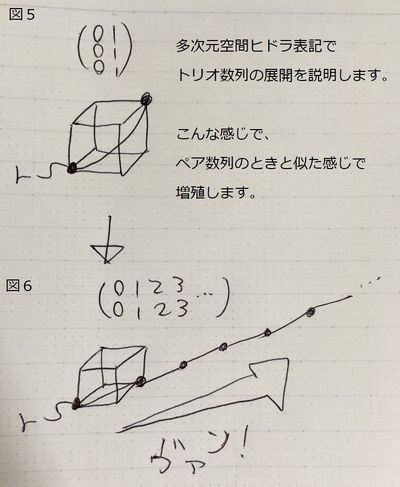 図5
(0 1
0 1
0 1)
多次元空間ヒドラ表記で
トリオ数列の展開を説明します。
こんな感じで、
ペア数列のときと似た感じで
増殖します。
ト
図6
(0 1 2 3 ...
0 1 2 3 ...)
...
ト
ヴァン!